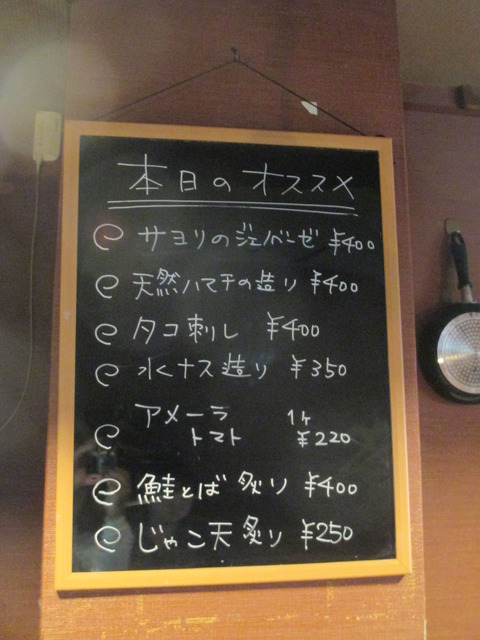 本日のオススメ
サヨリのジェノベーゼ ¥400
天然ハマチの造り ¥400
タコ刺し ¥400
水ナス造り ¥350
アメーラ 1ケ
トマト ¥220
鮭とば炙り ¥400
じゃこ天炙り ¥250